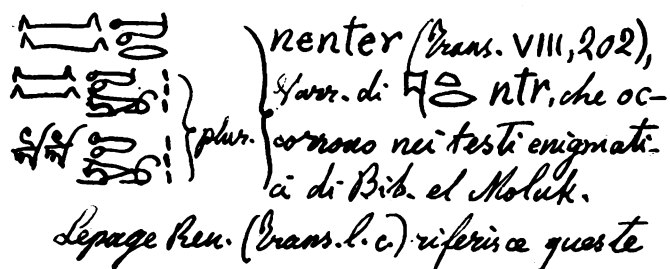 nenter (Trans. VIII, 202),
Varr. di ntr, che oc-
plur. corrono nei testi enigmati-
ci di Bib. el Moluk.
Lepage Ren. (Trans. l. c.) riferisce queste